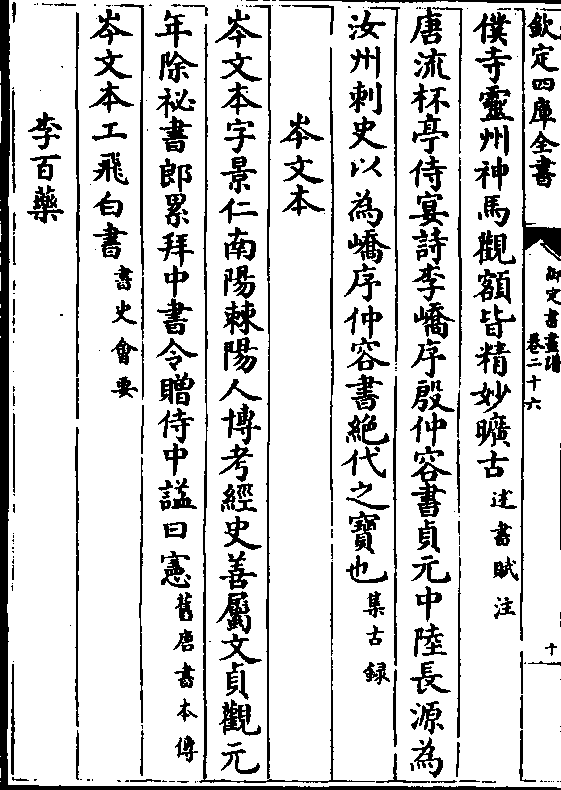 欽定四庫全書
御定書畫譜
卷二十六
十
僕寺靈州神馬觀額皆精妙曠古述書賦注
唐流杯亭侍宴詩李嶠序殷仲容書貞元中陸長源為
汝州刺史以為嶠序仲容書絕代之寶也集古録
岑文本
岑文本字景仁南陽棘陽人博考經史善屬文貞觀元
年除祕書郎累拜中書令贈侍中謚曰憲舊唐書本傳
岑文本工飛白書書史會要
李百藥